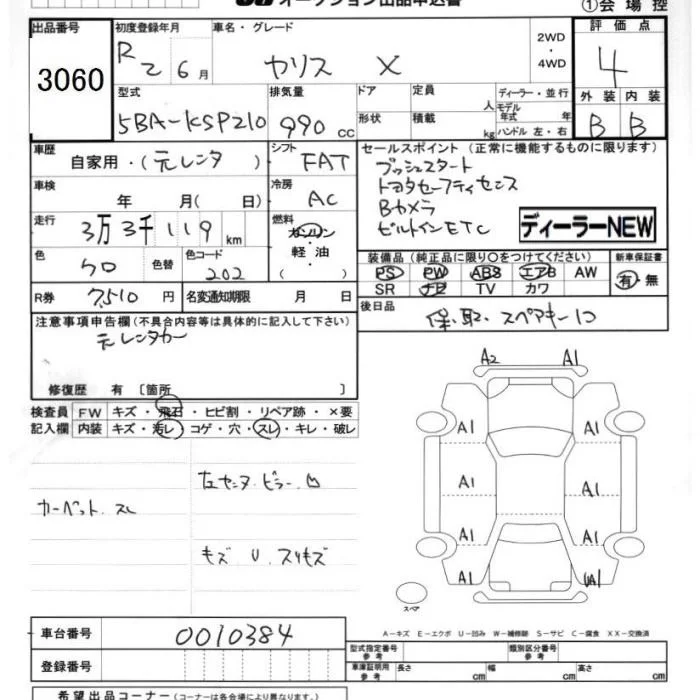 オークション出品申込書
①会場控
出品番号 初度登録年月 車名・グレード 評価点
3060 R2 6月 ヤリス X 2WD・4WD 4
型式 排気量 ドア 定員 ディーラー・並行 外装 内装
5BA-KSP210 990cc 形状 積載 人 kg モデル年式 年 ハンドル 左・右 B B
車歴 自家用・(元レンタ) シフト FAT
車検 年 月(日) 冷房 AC
走行 3万3千119km 燃料 ガソリン 軽油 ( )
色 クロ 色替 色コード 202
R券 7,510円 名変通知期限 月 日
セールスポイント (正常に機能するものに限ります)
プッシュスタート
トヨタセーフティセンス
Bカメラ
ビルトインETC
ディーラーNEW
装備品 (純正品に限り○をつけてください) 新車保証書
PS PW ABS エアB AW 有・無
SR ナビ TV カワ
後日品 保、取、スペアキー1コ
注意事項申告欄 (不具合内容等は具体的に記入して下さい)
元レンタカー
修復歴 有 〔箇所 〕
検査員 FW キズ・飛石・ヒビ割・リペア跡・×要
記入欄 内装 キズ・汚レ・コゲ・穴・スレ・キレ・破レ
左センターピラー凹
カーペット スレ
キズ U スリキズ
A2 A1
A1 A1
A1 A1
A1 A1
A1 UA1
スペア
車台番号 0010384
登録番号
A-キズ E-エクボ U-凹み W-補修跡 S-サビ C-腐食 XX-交換済
型式指定番号 参考 類別区分番号 参考
車庫証明用 参考 長さ cm 幅 cm 高さ cm
希望出品コーナー (コーナーは各会場により異なります。)